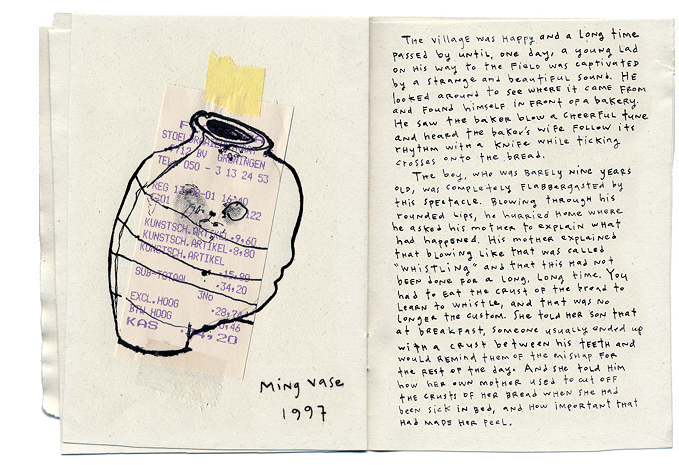 BV GRONINGEN
TEL. 050 - 3 13 24 53
REG 16:40
KUNSTSCH.ARTIKEL ·9,60
KUNSTSCH.ARTIKEL ·8,80
KUNSTSCH.ARTIKEL
·15,80
SUB-TOTAAL ·34,20
3No
EXCL.HOOG
BTW HOOG
KAS
Ming Vase
1997
The village was happy and a long time
passed by until, one day, a young lad
on his way to the field was captivated
by a strange and beautiful sound. He
looked around to see where it came from
and found himself in front of a bakery.
He saw the baker blow a cheerful tune
and heard the baker's wife follow its
rhythm with a knife while ticking
crosses onto the bread.
The boy, who was barely nine years
old, was completely flabbergasted by
this spectacle. Blowing through his
rounded lips, he hurried home where
he asked his mother to explain what
had happened. His mother explained
that blowing like that was called
"whistling" and that this had not
been done for a long, long time. You
had to eat the crust of the bread to
learn to whistle, and that was no
longer the custom. She told her son that
at breakfast, someone usually ended up
with a crust between his teeth and
would remind them of the mishap for
the rest of the day. And she told him
how her own mother used to cut off
the crusts of her bread when she had
been sick in bed, and how important that
had made her feel.